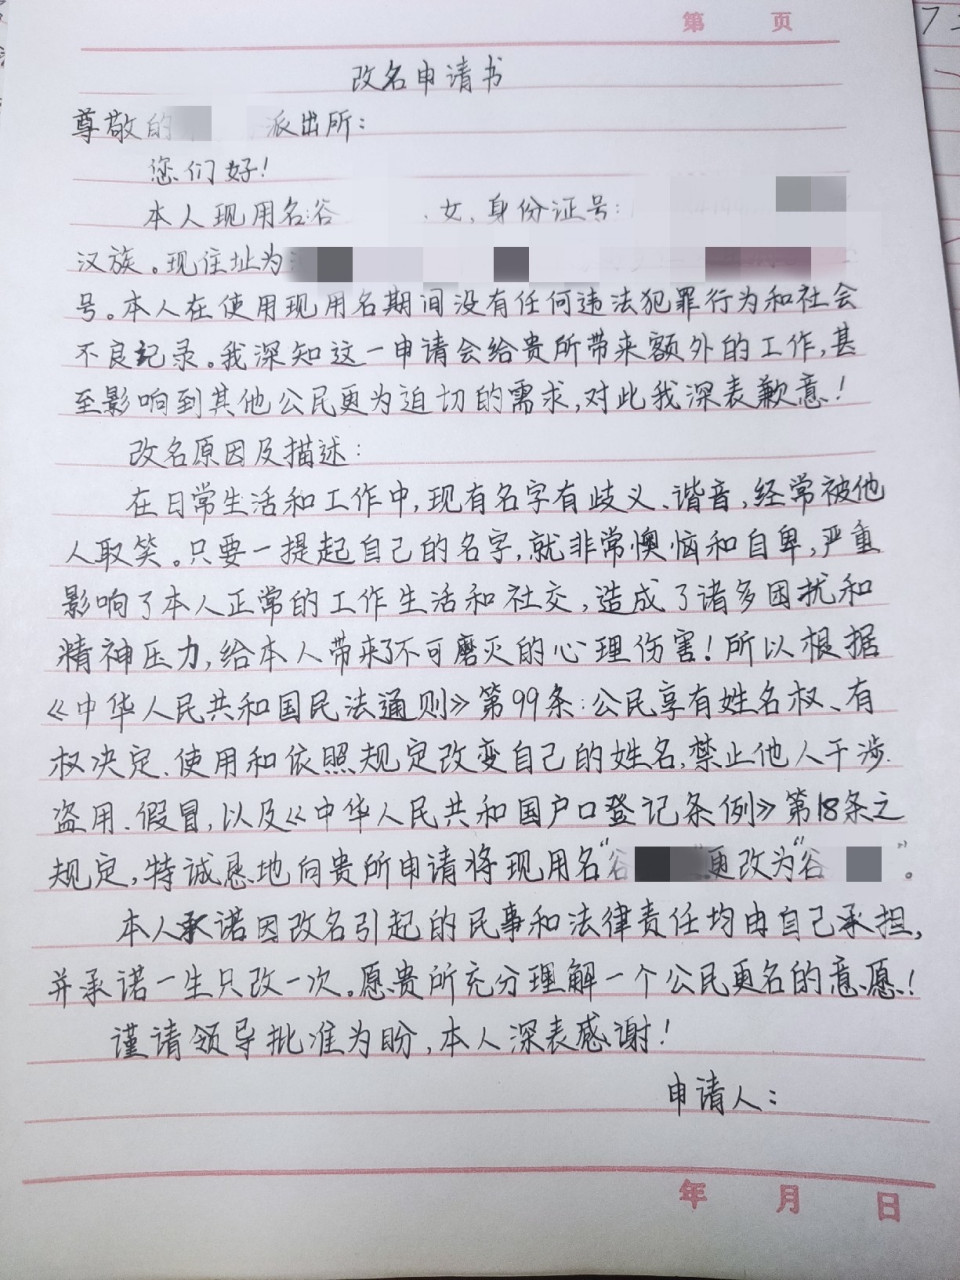 第 页
改名申请书
尊敬的 派出所：
您们好！
本人现用名：谷 女，身份证号：
汉族。现住址为
号。本人在使用现用名期间没有任何违法犯罪行为和社会
不良纪录。我深知这一申请会给贵所带来额外的工作，甚
至影响到其他公民更为迫切的需求，对此我深表歉意！
改名原因及描述：
在日常生活和工作中，现有名字有歧义、谐音，经常被他
人取笑。只要一提起自己的名字，就非常懊恼和自卑，严重
影响了本人正常的工作生活和社交，造成了诸多困扰和
精神压力，给本人带来了不可磨灭的心理伤害！所以根据
《中华人民共和国民法通则》第99条：公民享有姓名权、有
权决定、使用和依照规定改变自己的姓名，禁止他人干涉、
盗用、假冒，以及《中华人民共和国户口登记条例》第18条之
规定，特诚恳地向贵所申请将现用名“谷 ”更改为“谷 ”。
本人承诺因改名引起的民事和法律责任均由自己承担，
并承诺一生只改一次。愿贵所充分理解一个公民更名的意愿！
谨请领导批准为盼，本人深表感谢！
申请人：
年 月 日